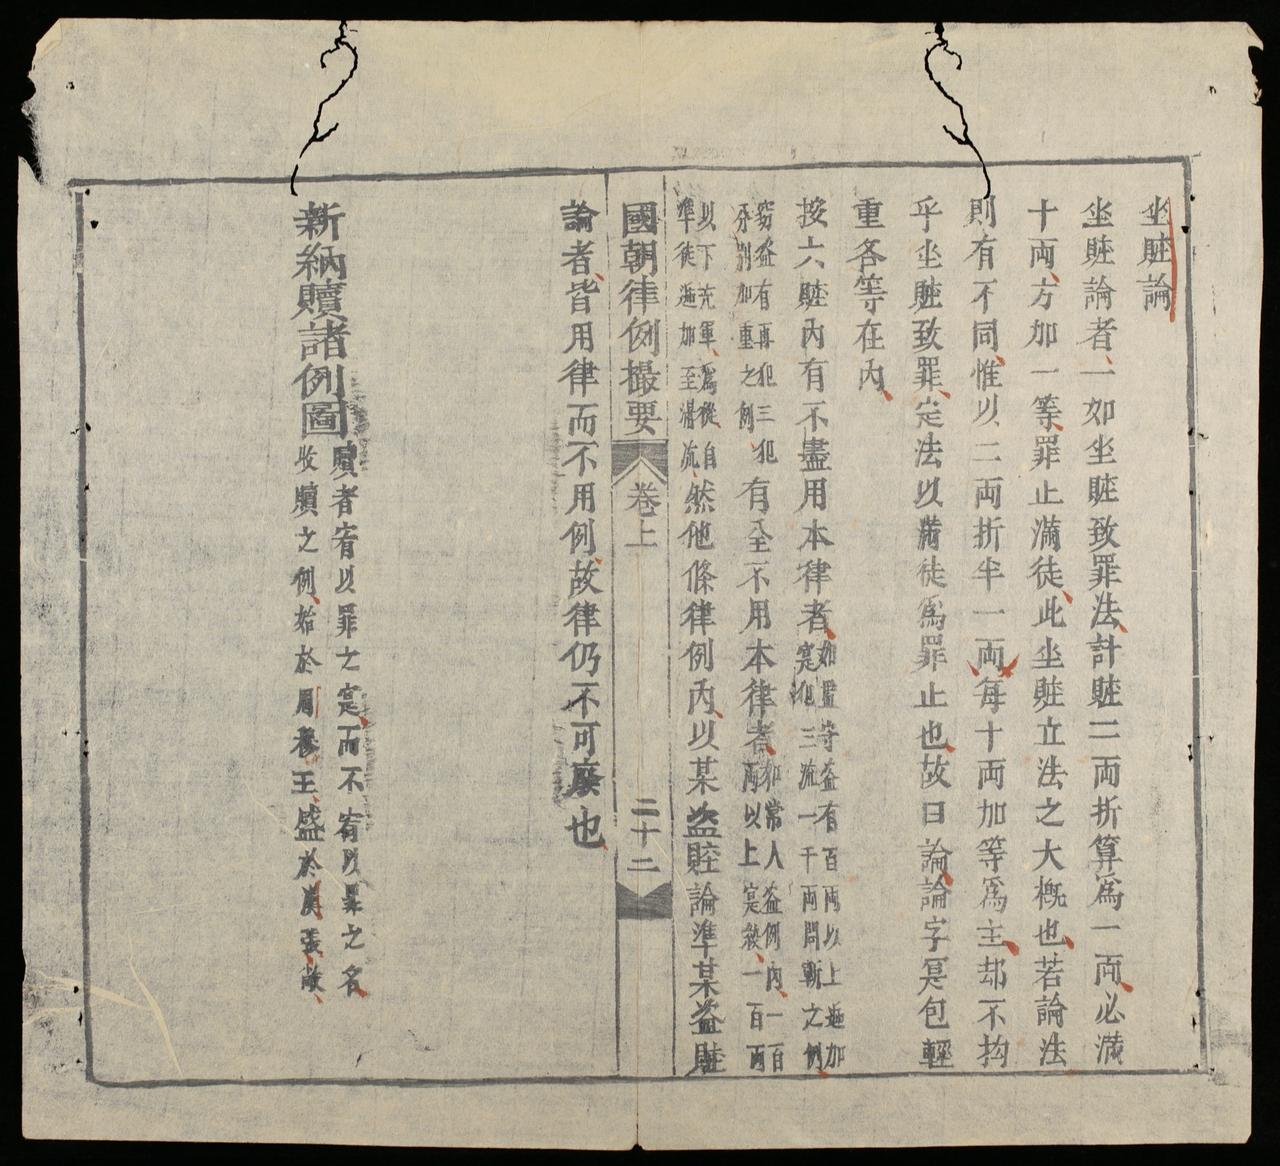 坐賍論
坐賍論者一如坐賍致罪法計賍二両折算爲一両必滿
十両方加一等罪止滿徒此坐賍立法之大概也若論法
則有不同惟以二両折半一両每十両加等爲主却不拘
乎坐賍致罪定法以滿徒爲罪止也故曰論論字寔包輕
重各等在內
按六賍內有不盡用本律者如監守盗有百両以上遞加
寔犯三流一千両問斬之例
竊盗有再犯三犯
分別加重之例有全不用本律者如常人盗例內一百
両以上寔絞一百両
以下充軍爲從自
準徒遞加至滿流然他條律例內以某盗賍論準某盗賍
國朝律例撮要 卷上 二十二
論者皆用律而不用例故律仍不可廢也
新納贖諸例圖贖者宥以罪之寔而不宥以罪之名
收贖之例始於周穆王盛於漢張敞